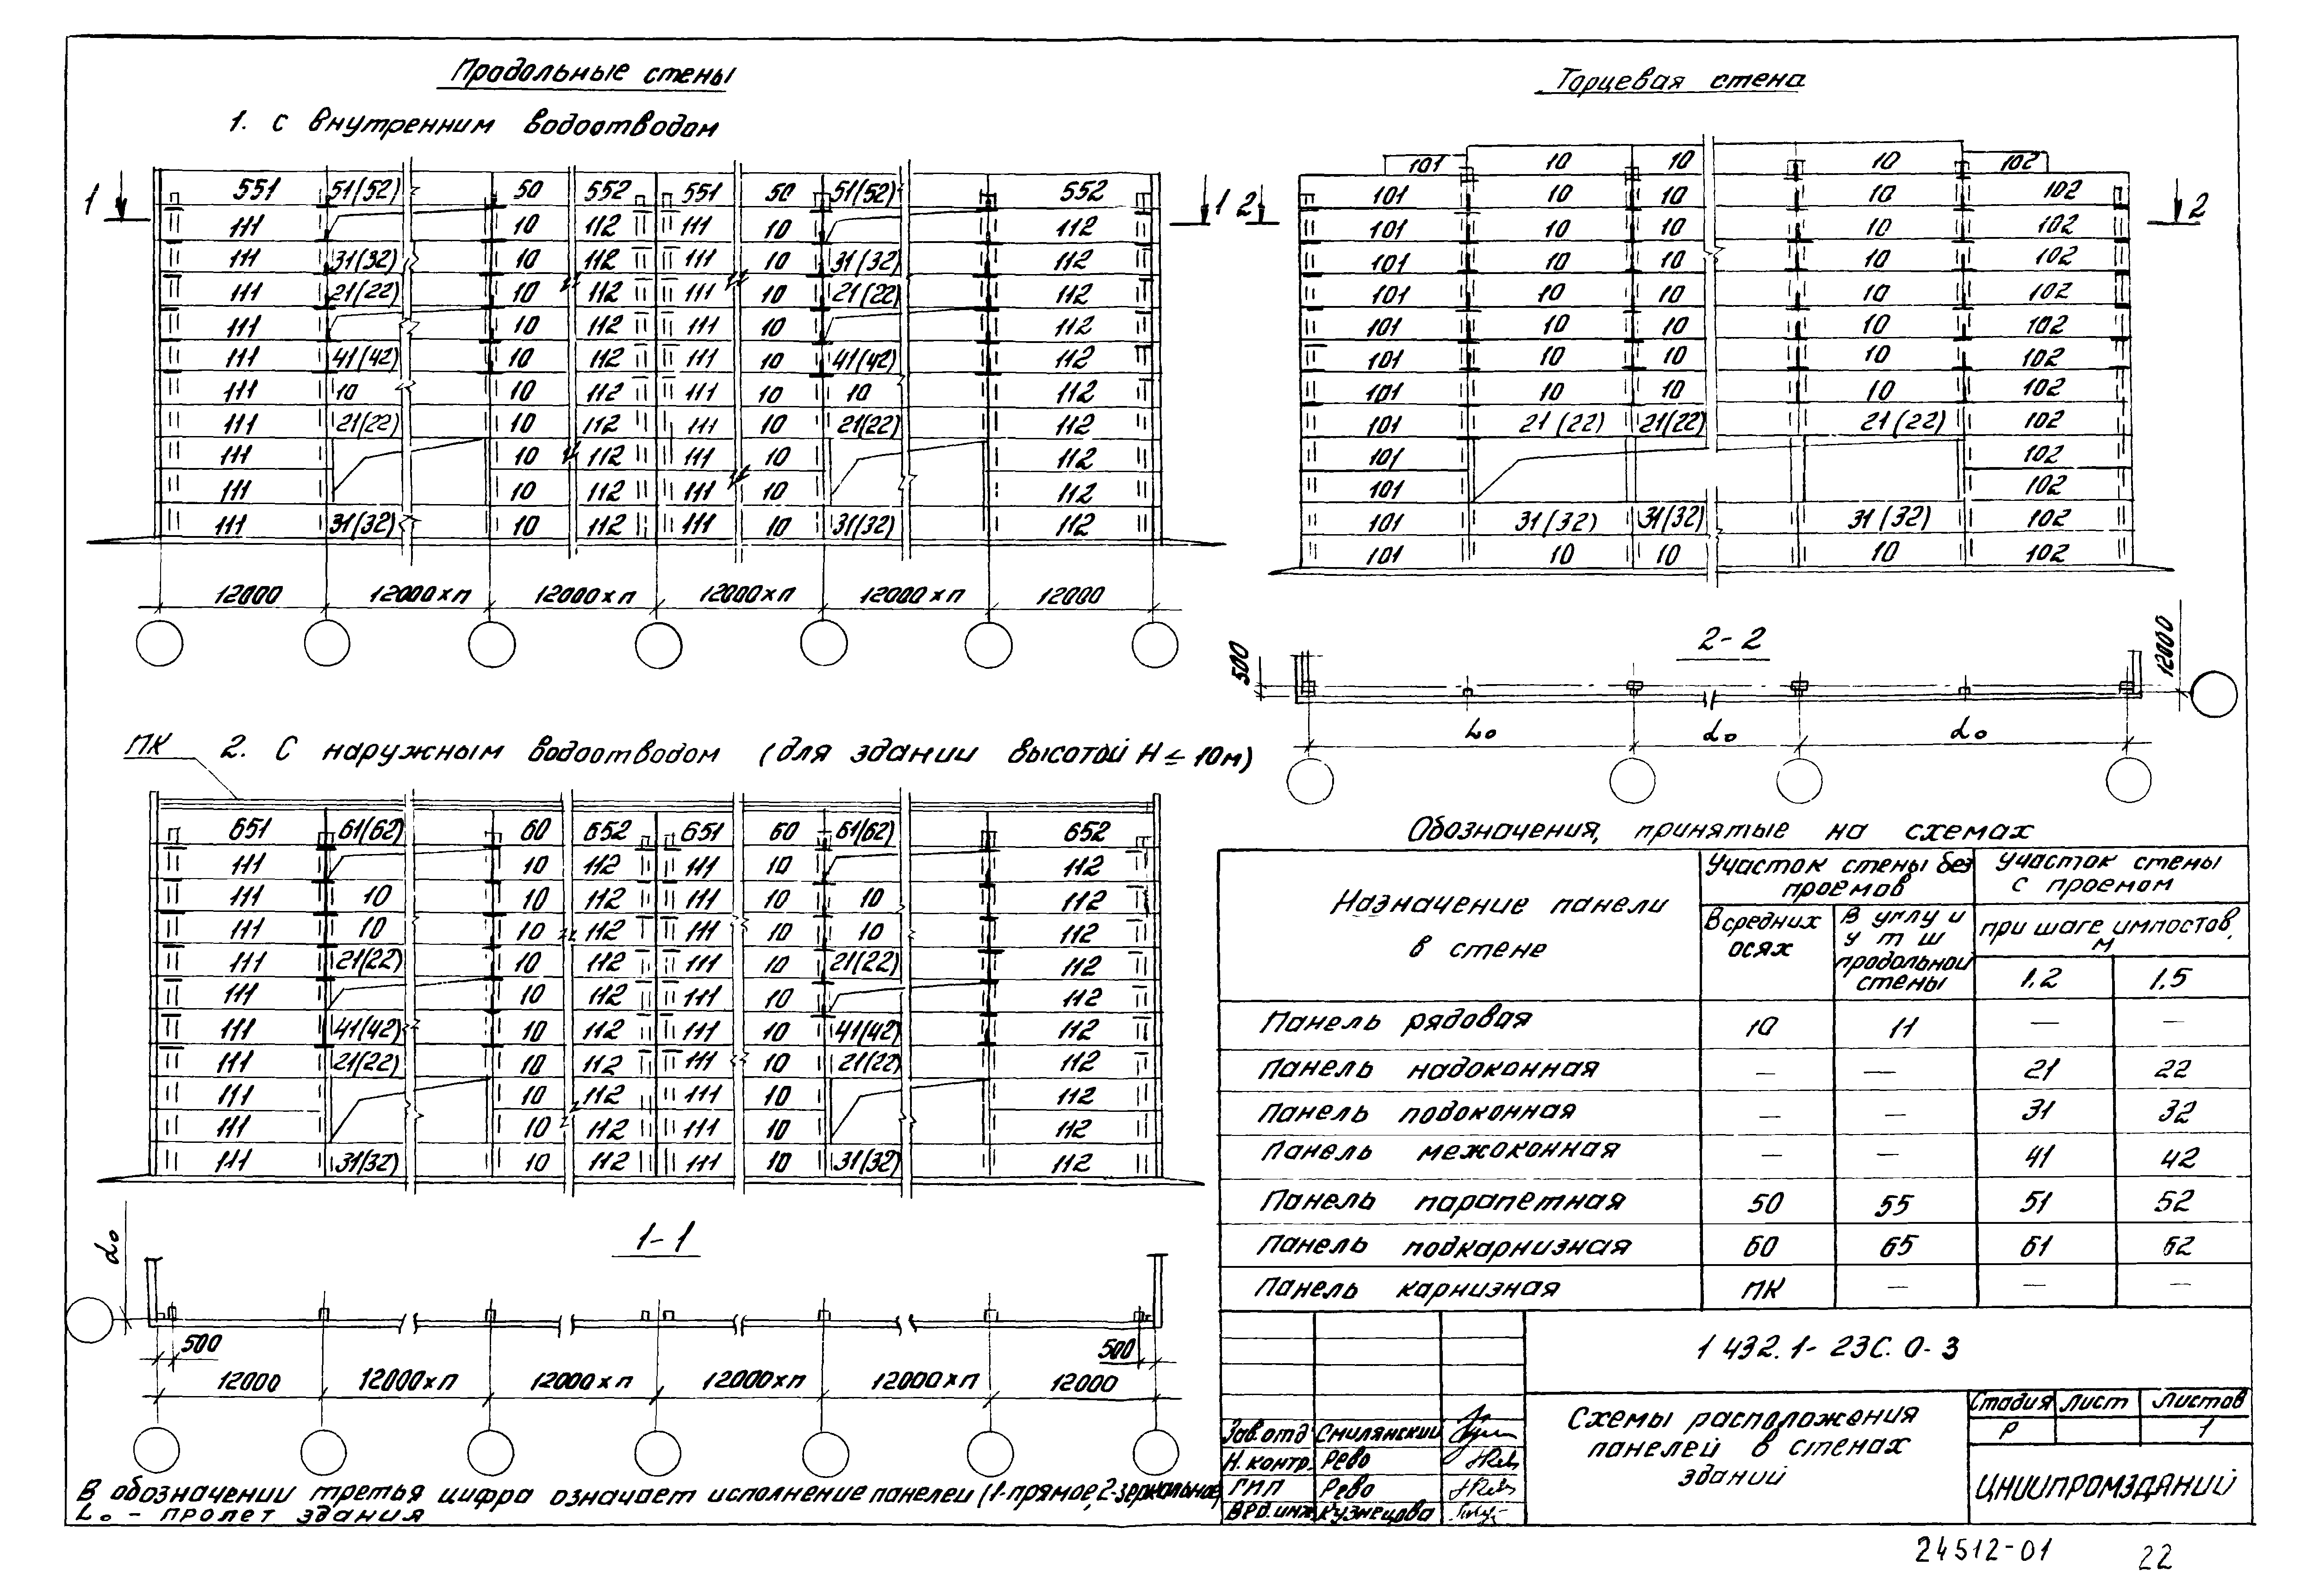 Продольные стены
1. с внутренним водоотводом
1
551 51(52) 50 552 551 50 51(52) 552
1
111 10 112 111 10 112
111 31(32) 10 112 111 10 31(32) 112
111 21(22) 10 112 111 10 21(22) 112
111 10 112 111 10 112
111 41(42) 10 112 111 10 41(42) 112
111 10 10 112 111 10 10 112
111 21(22) 10 112 111 10 21(22) 112
111 10 112 111 10 112
111 10 112 111 10 112
111 31(32) 10 112 111 10 31(32) 112
12000 12000хп 12000хп 12000хп 12000хп 12000
ПК
2. С наружным водоотводом (для здании высотой Н ≤ 10м)
651 61(62) 60 652 651 60 61(62) 652
111 10 112 111 10 112
111 10 10 112 111 10 10 112
111 10 10 112 111 10 10 112
111 21(22) 10 112 111 10 21(22) 112
111 10 112 111 10 112
111 41(42) 10 112 111 10 41(42) 112
111 21(22) 10 112 111 10 21(22) 112
111 10 112 111 10 112
111 10 112 111 10 112
111 31(32) 10 112 111 10 31(32) 112
1-1
L₀
500 500
12000 12000хп 12000хп 12000хп 12000хп 12000
В обозначении третья цифра означает исполнение панелей (1-прямое, 2-зеркальное)
L₀ - пролет здания
Торцевая стена
101 10 10 10 102
101 10 10 10 102
2 2
101 10 10 10 102
101 10 10 10 102
101 10 10 10 102
101 10 10 10 102
101 10 10 10 102
101 10 10 10 102
101 21(22) 21(22) 21(22) 102
101 102
101 102
101 31(32) 31(32) 31(32) 102
101 10 10 10 102
2-2
500
12000
L₀ L₀ L₀
Обозначения, принятые на схемах
Назначение панели
в стене
Участок стены без
проемов
Участок стены
с проемом
В средних
осях
В углу и
у т ш
продольной
стены
при шаге импостов,
м
1,2 1,5
Панель рядовая 10 11 — —
Панель надоконная — — 21 22
Панель подоконная — — 31 32
Панель межоконная — — 41 42
Панель парапетная 50 55 51 52
Панель подкарнизная 60 65 61 62
Панель карнизная ПК — — —
1 432.1-23С.0-3
Зав.отд Смилянский
Н.контр. Рево
ГИП Рево
Вед.инж Кузнецова
Схемы расположения
панелей в стенах
зданий
Стадия Лист Листов
Р 1
ЦНИИПРОМЗДАНИЙ
24512-01 22